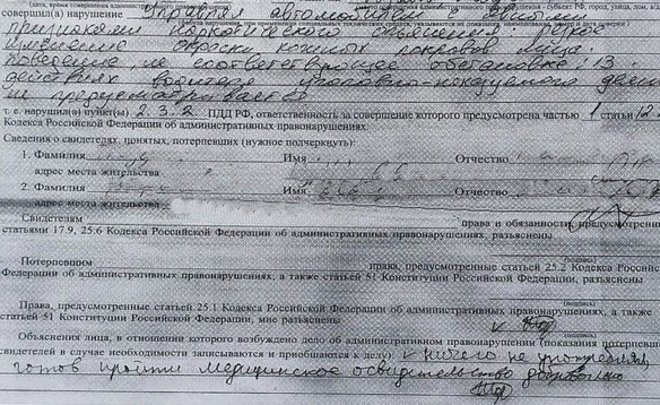 совершил(а) нарушение Управлял автомобилем с явными
признаками наркотического опьянения: резкое
изменение окраски кожных покровов лица.
поведение, не соответствующее обстановке. В
действиях водителя уголовно-наказуемого деян
не предусматривается
т. е. нарушил(а) пункт(ы) 2.3.2 ПДД РФ, ответственность за совершение которого предусмотрена частью 1 статьи 12
Кодекса Российской Федерации об административных правонарушениях.
Сведения о свидетелях, понятых, потерпевших (нужное подчеркнуть):
1. Фамилия Имя Отчество
адрес места жительства
2. Фамилия Имя Отчество
адрес места жительства
Свидетелям права и обязанности, предусмотренн
статьями 17.9, 25.6 Кодекса Российской Федерации об административных правонарушениях, разъяснены
Потерпевшим права, предусмотренные статьей 25.2 Кодекса Росси
Федерации об административных правонарушениях, а также статьей 51 Конституции Российской Федерации, разъяснены
(подпись)
Права, предусмотренные статьей 25.1 Кодекса Российской Федерации об административных правонарушениях, а также
статьей 51 Конституции Российской Федерации, мне разъяснены
(подпись)
Объяснения лица, в отношении которого возбуждено дело об административном правонарушении (показания потерпевше
свидетелей в случае необходимости записываются и приобщаются к делу) ничего не употреблял,
готов пройти медицинское освидетельство добровольно